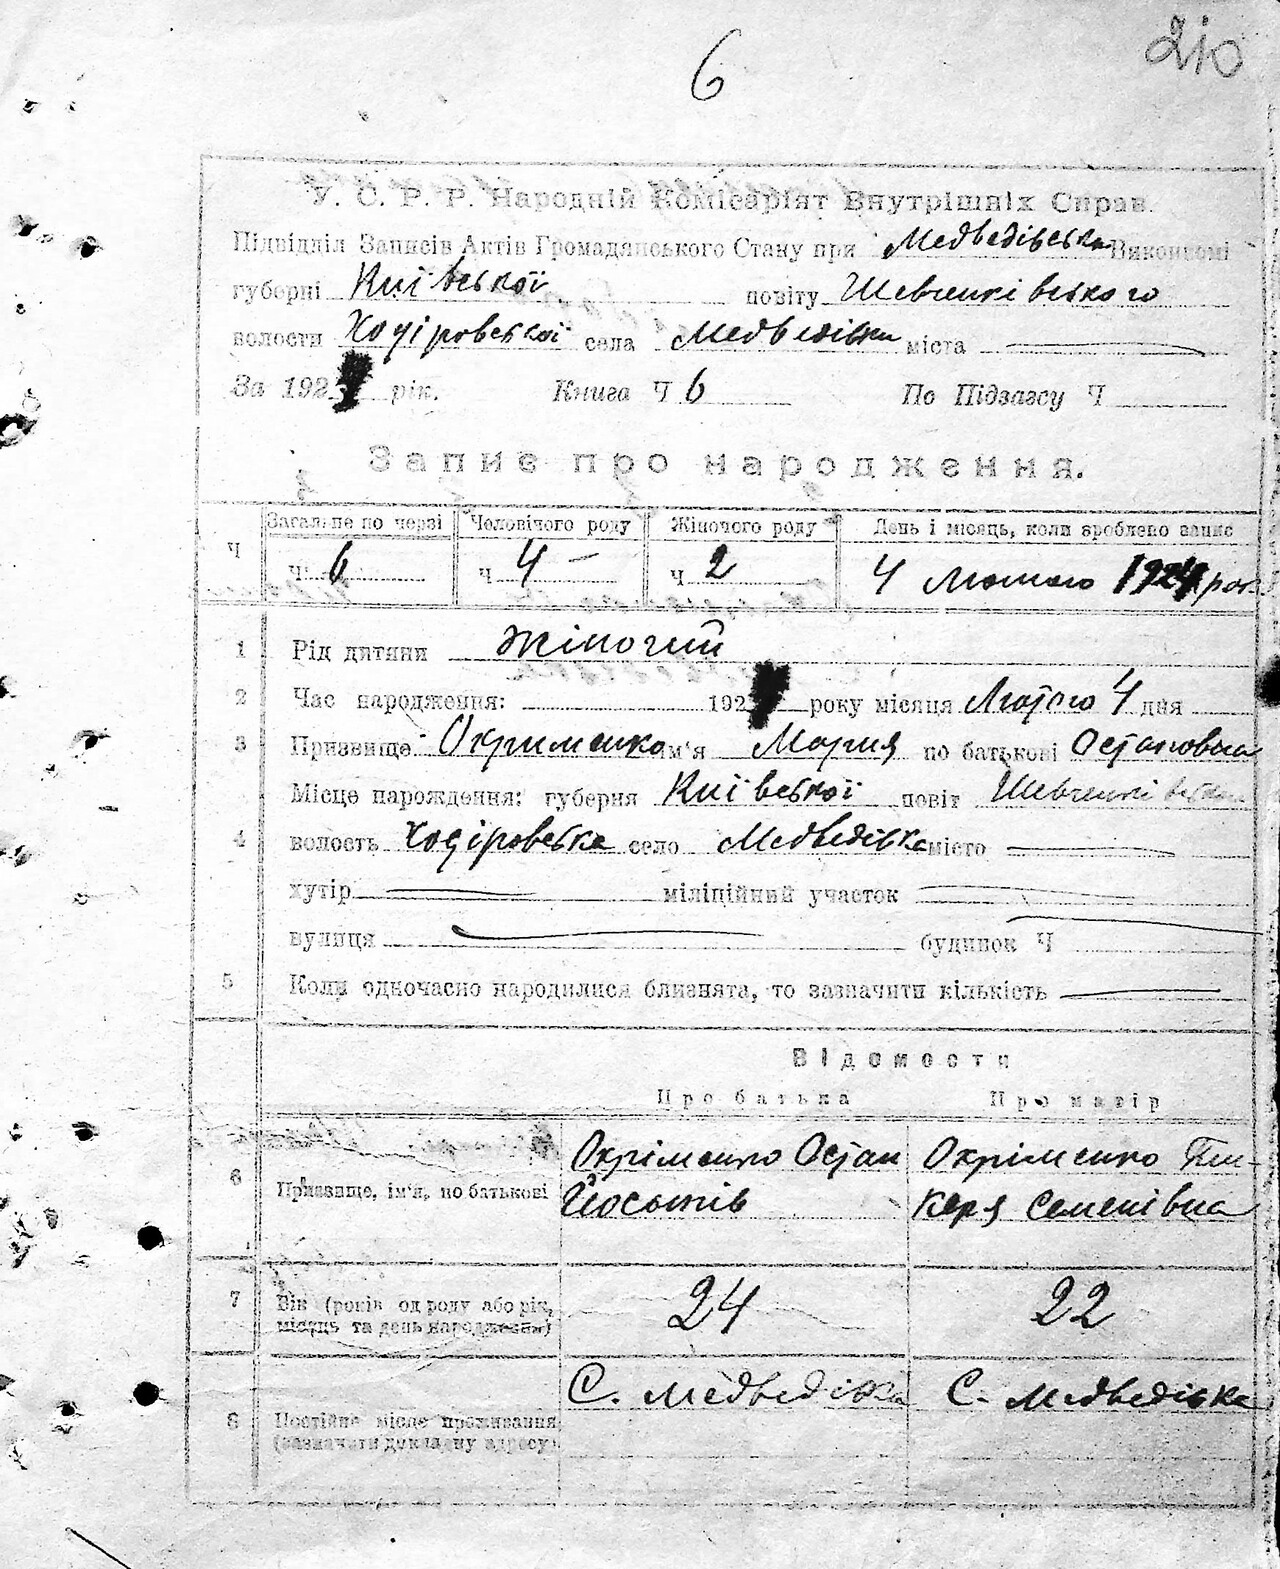 210
6
У. С. Р. Р. Народній Комісаріят Внутрішніх Справ.
Підвідділ Записів Актів Громадянського Стану при Медведівськ Виконкомі
губерні Київської повіту Шевченківського
волости села Медведівки міста
За 192 рік. Книга Ч 6 По Підзагсу Ч
Запис про народження.
Загальне по черзі Чоловічого роду Жіночого роду День і місяць, коли зроблено запис
Ч Ч 6 Ч 4 — Ч 2 4 Лютого 1924 рок
1 Рід дитини Жіночий
2 Час народження: 192 року місяця Лютого 4 дня
3 Призвище Окрименко ім'я Мария по батькові Остаповна
Місце народження: губерня Київської повіт Шевченківськ
4 волость село Медведівка місто
хутір міліційний участок
вулиця будинок Ч
5 Коли одночасно народилися близнята, то зазначити кількість
Відомости
Про батька Про матір
6 Призвище, ім'я, по батькові Окріменко Остап Окріменко
Йосипів Семенівна
7 Вік (років од роду або рік, місяць та день народження) 24 22
8 Постійне місце проживання (зазначити докладну адресу) С. Медведівка С. Медведівка